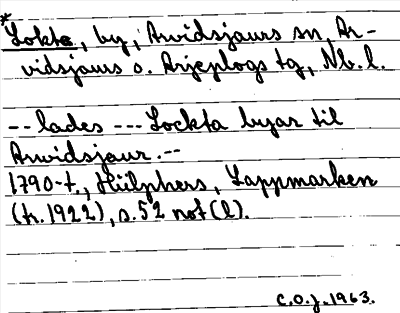 *Lokta, by, Arvidsjaurs sn, Ar-
vidsjaurs o. Arjeplogs tg, Nb. l.
-- lades --- Lockta byar til
Arwidsjaur. --
1790-t., Hülphers, Lappmarken
(tr. 1922), s. 52 not (l).
C.O.J. 1963.